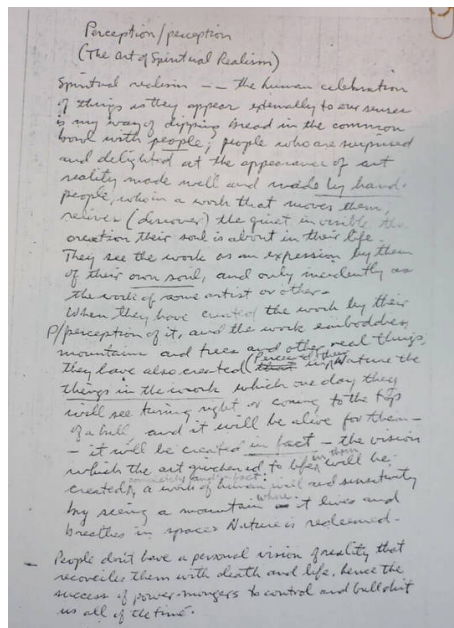 Perception/perception
(The Art of Spiritual Realism)
Spiritual realism -- the human celebration
of things as they appear externally to our senses
is my way of dipping bread in the common
bowl with people; people who are surprised
and delighted at the appearance of art
reality made well and made by hand.
people, who in a work that moves them,
relives (discovers) the quiet invisible
creation their soul is about in their life.
They see the work as an expression by them
of their own soul, and only incidently as
the work of some artist or other.
When they have created the work by their
P/perception of it, and the work embodies
mountains and trees and other real things,
they have also created in Nature the
things in the work which one day they
will see turning right or coming to the top
of a hill, and it will be alive for them -
- it will be created in fact - the vision
which the art quickened to life in them will be
created, a work of human will and sensitivity
by seeing a mountain where it lives and
breathes in space. Nature is redeemed.
People don't have a personal vision of reality that
reconciles them with death and life, hence the
success of power-mongers to control and bullshit
us all of the time.